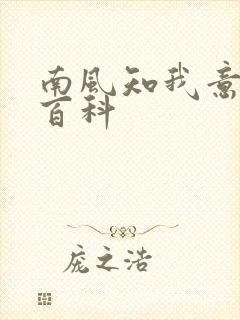 南風知我意
百科
庞之浩